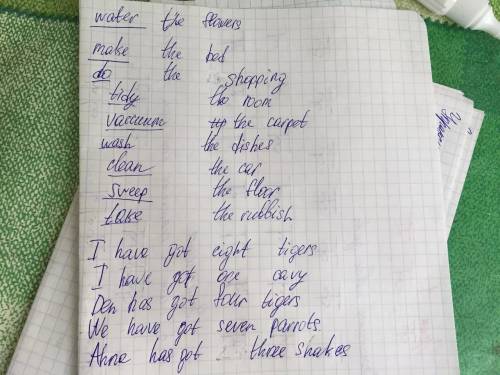 water the flowers
make the bed
do the shopping
tidy the room
vaccuum the carpet
wash the dishes
clean the car
sweep the floor
take the rubbish
I have got eight tigers
I have got one cavy
Den has got four tigers
We have got seven parrots
Ahne has got three snakes